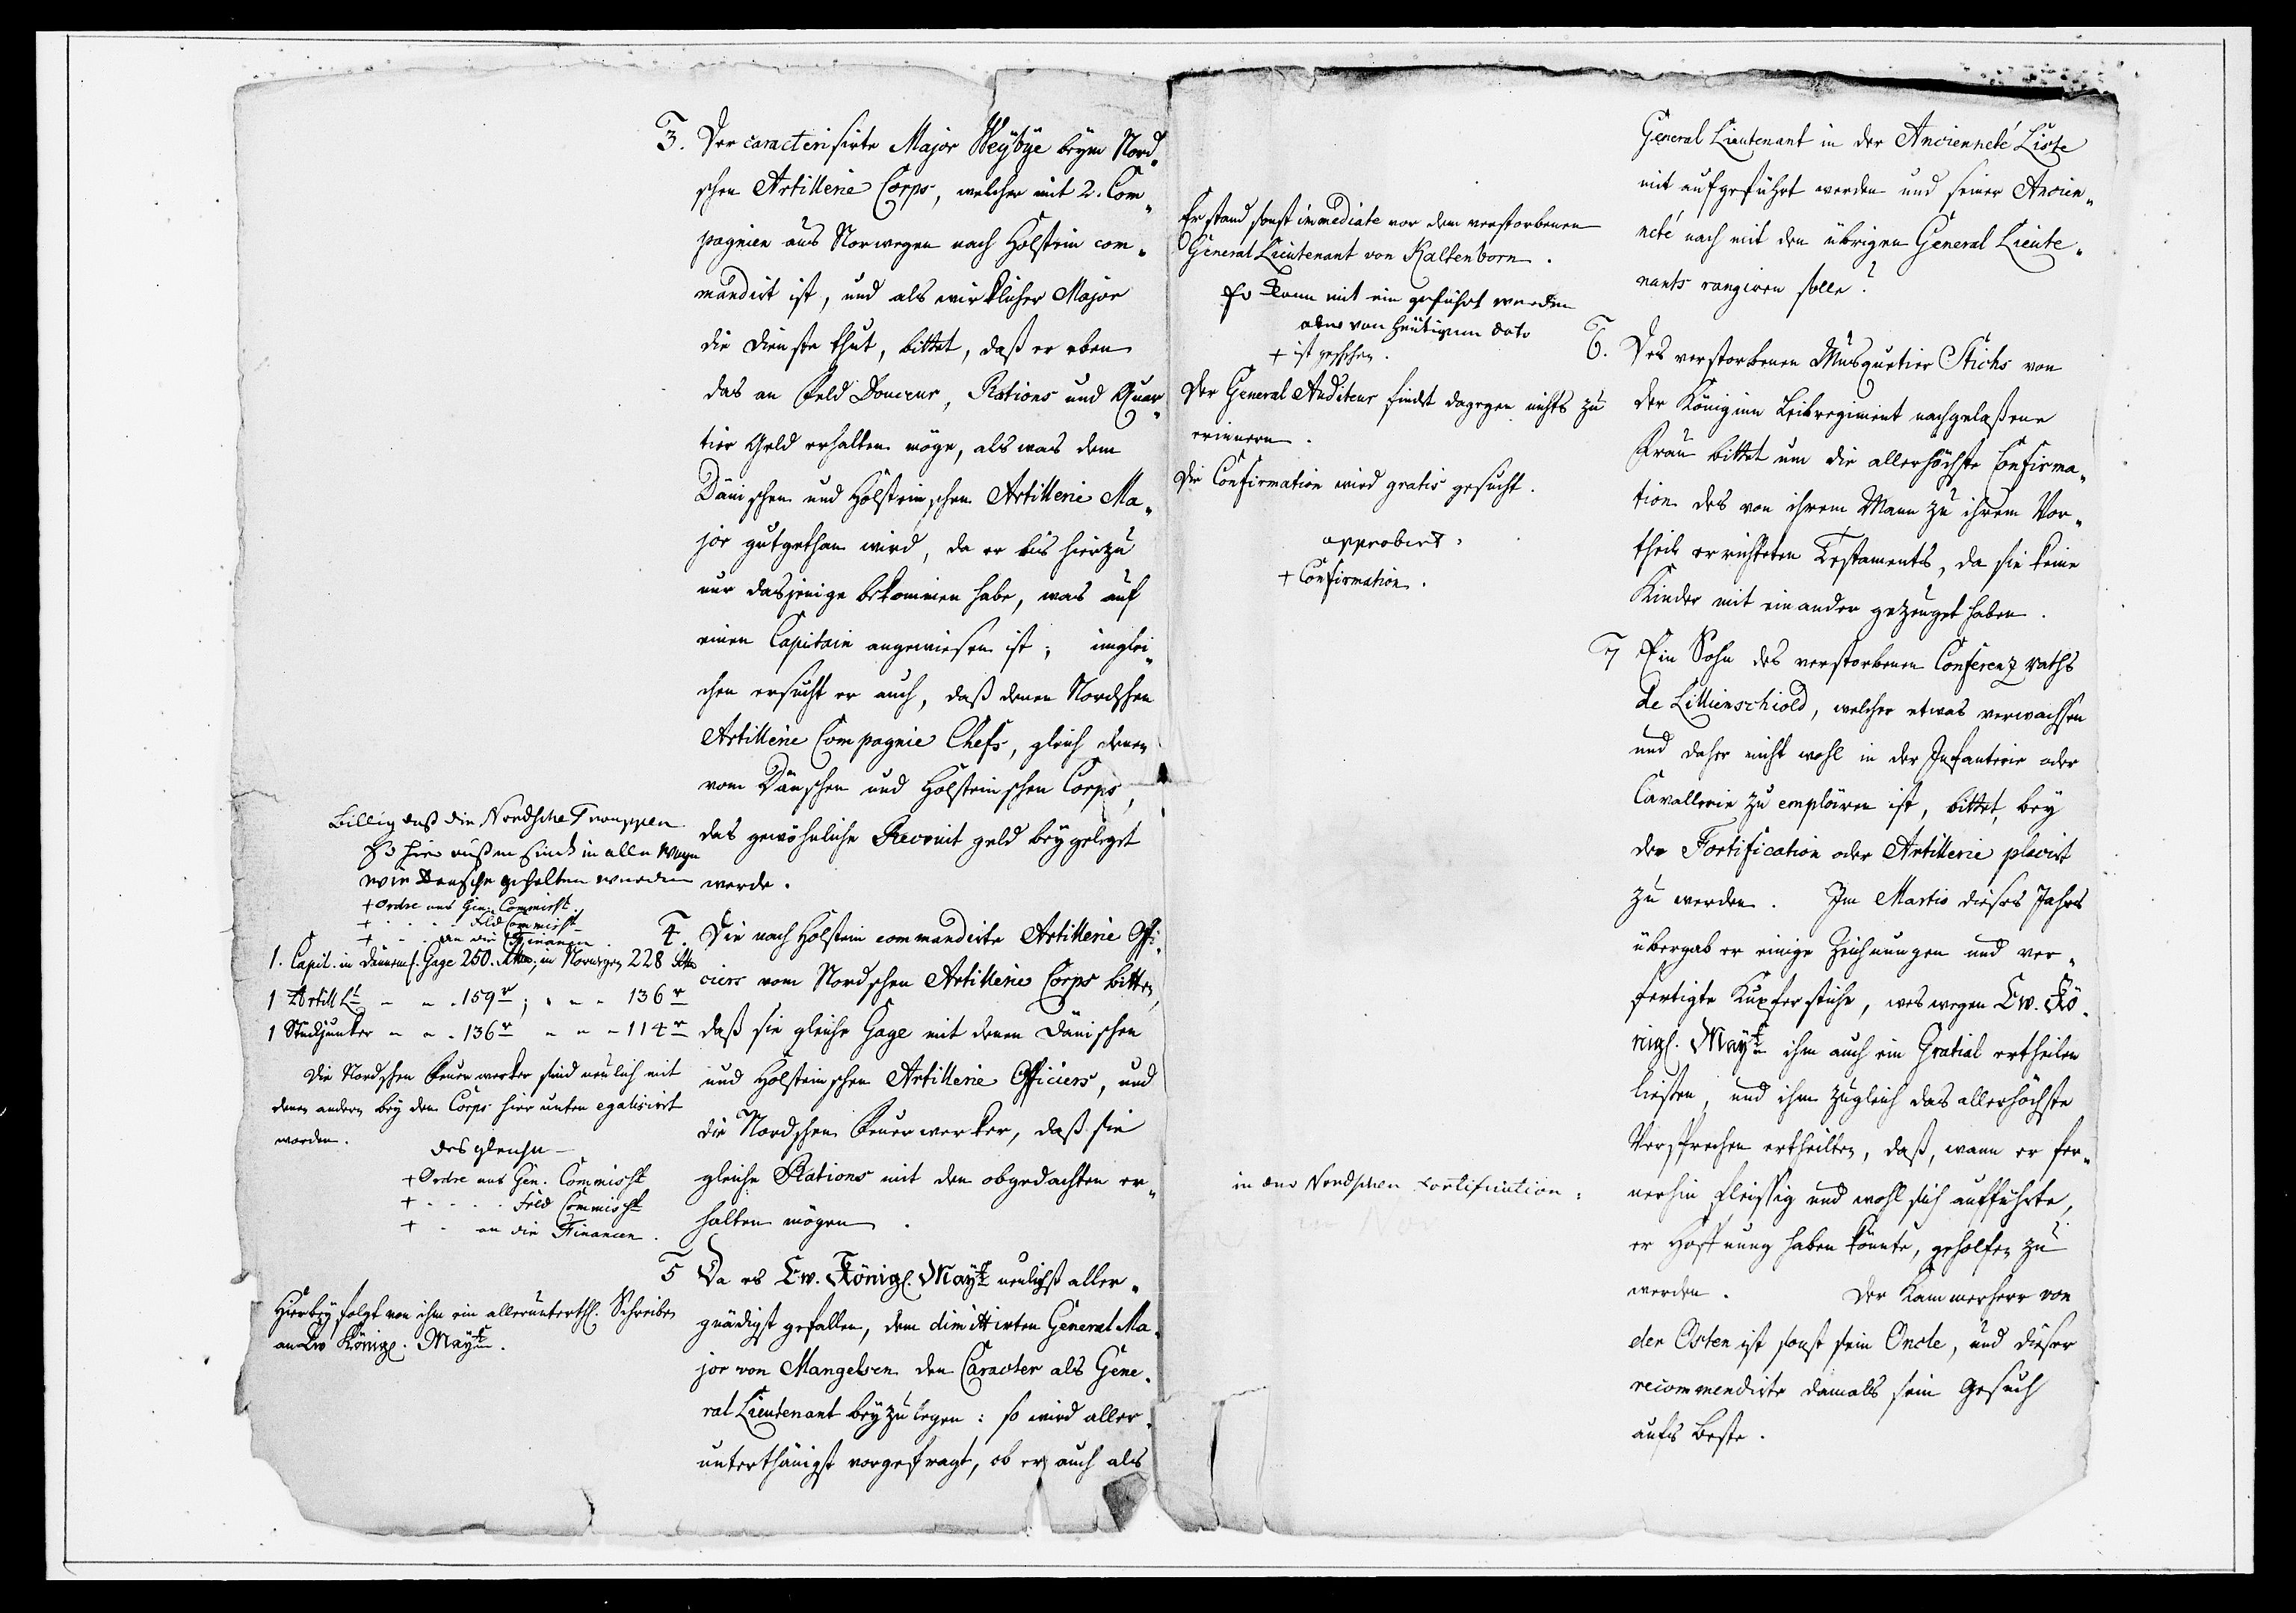 3. Der caracterisirte Major Weybye beym Nord„
schen Artillerie Corps, welcher mit 2. Com„
pagnien aus Norwegen nach Holstein com„
mandirt ist, und als wirklicher Major
die Dienste thut, bittet, daß er eben
das an Feld Douceur, Rations und Quar„
tier Geld erhalten möge, als was dem
Dänischen und Holsteinschen Artillerie Ma„
jor gutgethan wird, da er bis hierzu
nur dasjenige bekommen habe, was auf
einen Capitain angewiesen ist; imglei„
chen ersucht er auch, daß denen Nordschen
Artillerie Compagnie Chefs, gleich denen
vom Dänschen und Holsteinschen Corps,
das gewöhnliche Recruit geld beygeleget
werde.
Billig daß die Nordsche Trouppen
so hier außen sind in alle Wege
wie Dansche gehalten werden
+ Ordre ans Gen. Commisst.
+ - - - Feld Commisst
+ - - an die Financen.
4. Die nach Holstein commandirte Artillerie Offi„
ciers vom Nordschen Artillerie Corps bitten,
daß sie gleiche Gage mit denen Dänischen
und Holsteinschen Artillerie Officiers, und
die Nordschen Feuerwerker, daß sie
gleiche Rations mit den obgedachten er„
halten mögen.
1. Capit. in Dännem. Gage 250. Rthr; in Norwegen 228 Rthr
1 Artill Lt - - . 159 r; - - - 136 r
1 Stückjunker - - . 136 r - - - 114 r
Die Nordschen Feuerwerker sind neulich mit
denen andern bey dem Corps hier unten egalisirt
worden.
desgleichen
+ Ordre ans Gen. Commisst
+ - - - - Feld Commisst
+ - an die Financen.
5 Da es Ew. Königl. Mayt neulichst aller„
gnädigst gefallen, dem dimittirten General Ma„
jor von Mangelsen den Caracter als Gene„
ral Lieutenant beyzulegen: so wird aller„
unterthänigst vorgefragt, ob er auch als
Hierbey folgt von ihm ein allerunterth. Schreiben
an Ew Königl. Mayt.
General Lieutenant in der Ancienneté Liste
mit aufgeführt werden und seiner Ancien„
neté nach mit den übrigen General Lieute„
nants rangiren solle?
Er stand sonst immediate vor dem verstorbenen
General Lieutenant von Kaltenborn.
Er kann mit ein geführt werden
aber von heutigem dato
+ ist geschehen.
6. Des verstorbenen Musquetier Stichs von
der Königinn Leibregiment nachgelaßene
Frau bittet um die allerhöchste Confirma„
tion des von ihrem Mann zu ihrem Vor„
theil errichteten Testaments, da sie keine
Kinder mit einander gezeuget haben.
Der General Auditeur findet dagegen nichts zu
erinnern.
Die Confirmation wird gratis gesucht.
approbirt.
+ Confirmation.
7 Ein Sohn des verstorbenen Conferenz raths
de Lillienschiold, welcher etwas verwachsen
und daher nicht wohl in der Infanterie oder
Cavallerie zu emploiren ist, bittet, bey
der Fortification oder Artillerie placirt
zu werden. Im Martio dieses Jahrs
übergab er einige Zeichnungen und ver„
fertigte Kupferstiche, weswegen Ew. Kö„
nigl. Mayt ihm auch ein Gratial ertheilen
ließen, und ihm zugleich das allerhöchste
Versprechen ertheilten, daß, wann er fer„
nerhin fleissig und wohl sich aufführte,
er Hoffnung haben könnte, geholfen zu
werden. Der Kammerherr von
der Osten ist sonst sein Oncle, und dieser
recommendirte damals sein Gesuch
aufs Beste.
in der Nordschen Fortification.